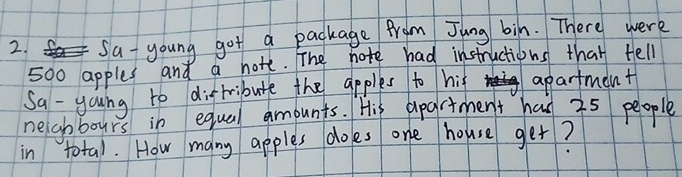 2. Sa-young got a package from Jung bin. There were
500 apples and a note. The note had instructions that tell
Sa-young to distribute the apples to his apartment
neighbours in equal amounts. His apartment has 25 people
in total. How many apples does one house get?